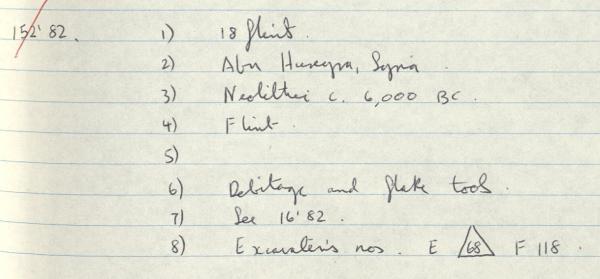 152'82. 1) 18 flint.
2) Abu Hureyra, Syria.
3) Neolithic c. 6,000 BC.
4) Flint.
5)
6) Debitage and flake tools.
7) See 16'82.
8) Excavator's nos. E 68 F 118.